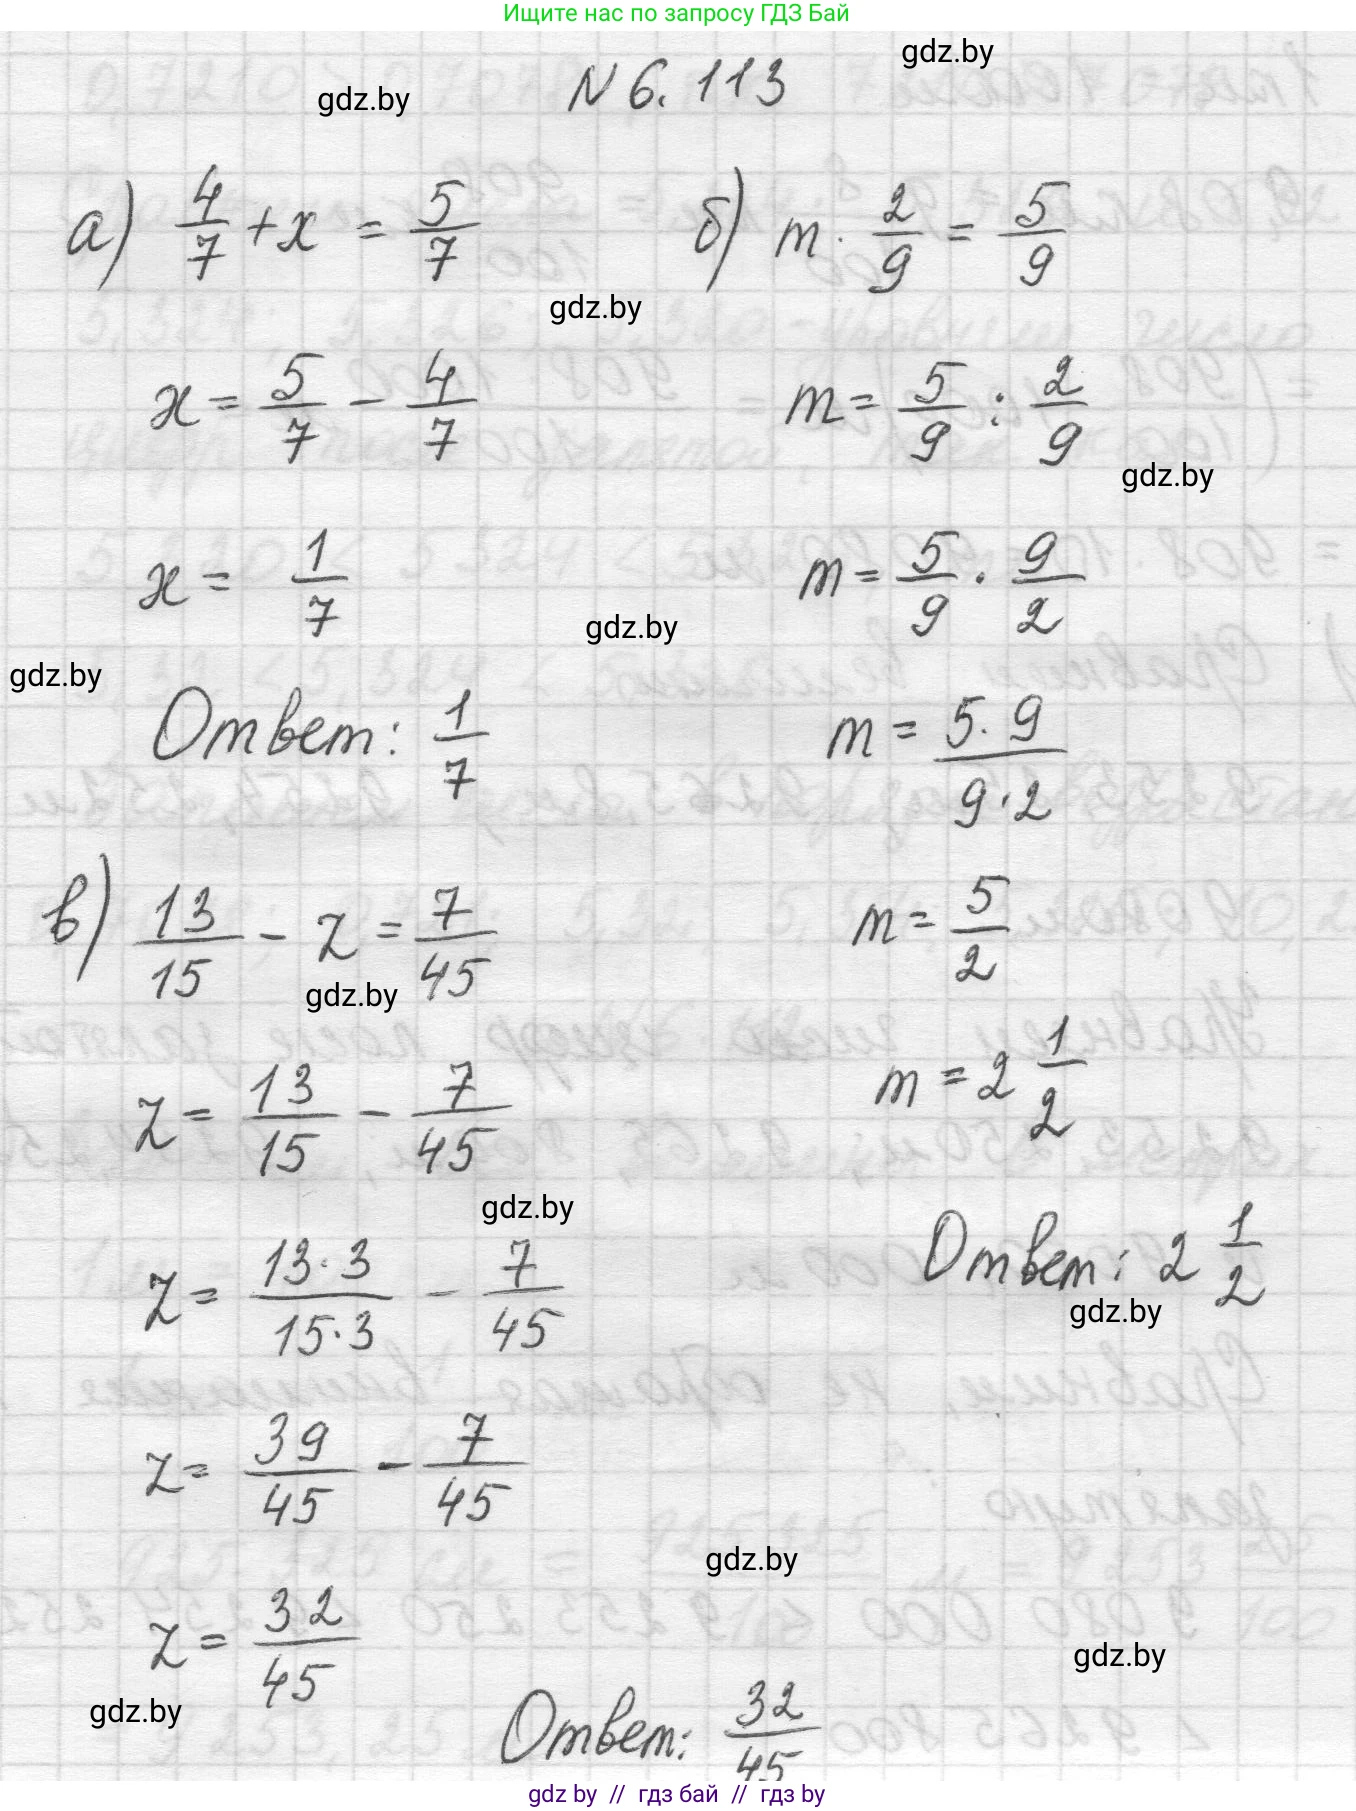 Ищите нас по запросу ГДЗ Бай
gdz.by
gdz.by
N 6.113
а) 4/7 + x = 5/7
x = 5/7 - 4/7
x = 1/7
Ответ: 1/7
gdz.by
gdz.by
gdz.by
б) m · 2/9 = 5/9
m = 5/9 : 2/9
gdz.by
m = 5/9 · 9/2
m = 5·9/9·2
m = 5/2
m = 2 1/2
Ответ: 2 1/2
gdz.by
в) 13/15 - z = 7/45
gdz.by
z = 13/15 - 7/45
gdz.by
z = 13·3/15·3 - 7/45
z = 39/45 - 7/45
gdz.by
z = 32/45
gdz.by
gdz.by
Ответ: 32/45
gdz.by // гдз бай // гдз by